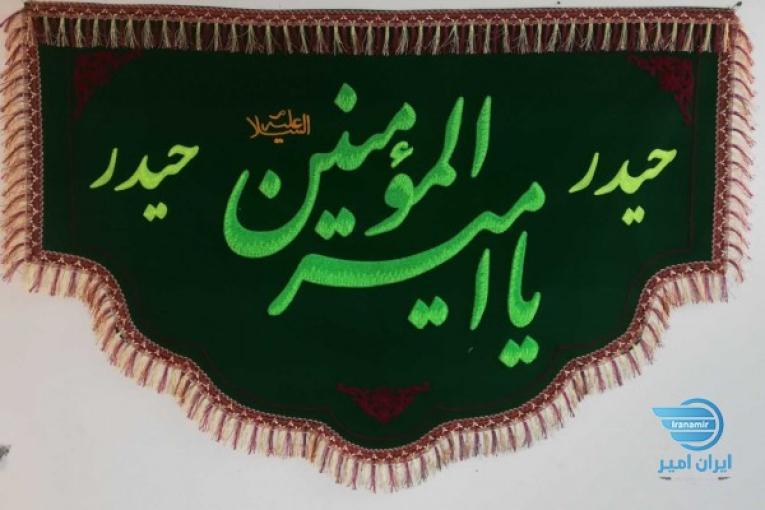 علیه السلام
حیدر
یا امیر المؤمنین
حیدر
Iranamir
ایران امیر